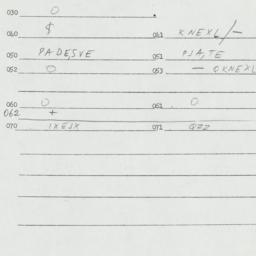 030 O
040 $ 041 KNEXL/-
050 PADE,SVE 051 PJA,TE
052 O 053 - QKNEXL
060 O 061 O
062 +
070 IXEJX 071 QZZ